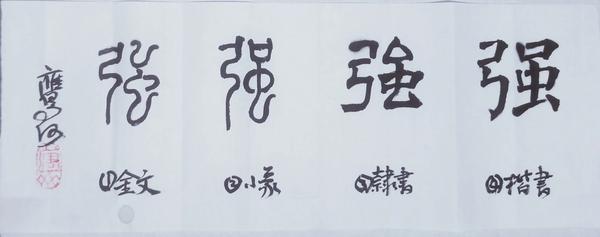 強 强 強 强
①金文 ②小篆 ③隸書 ④楷書